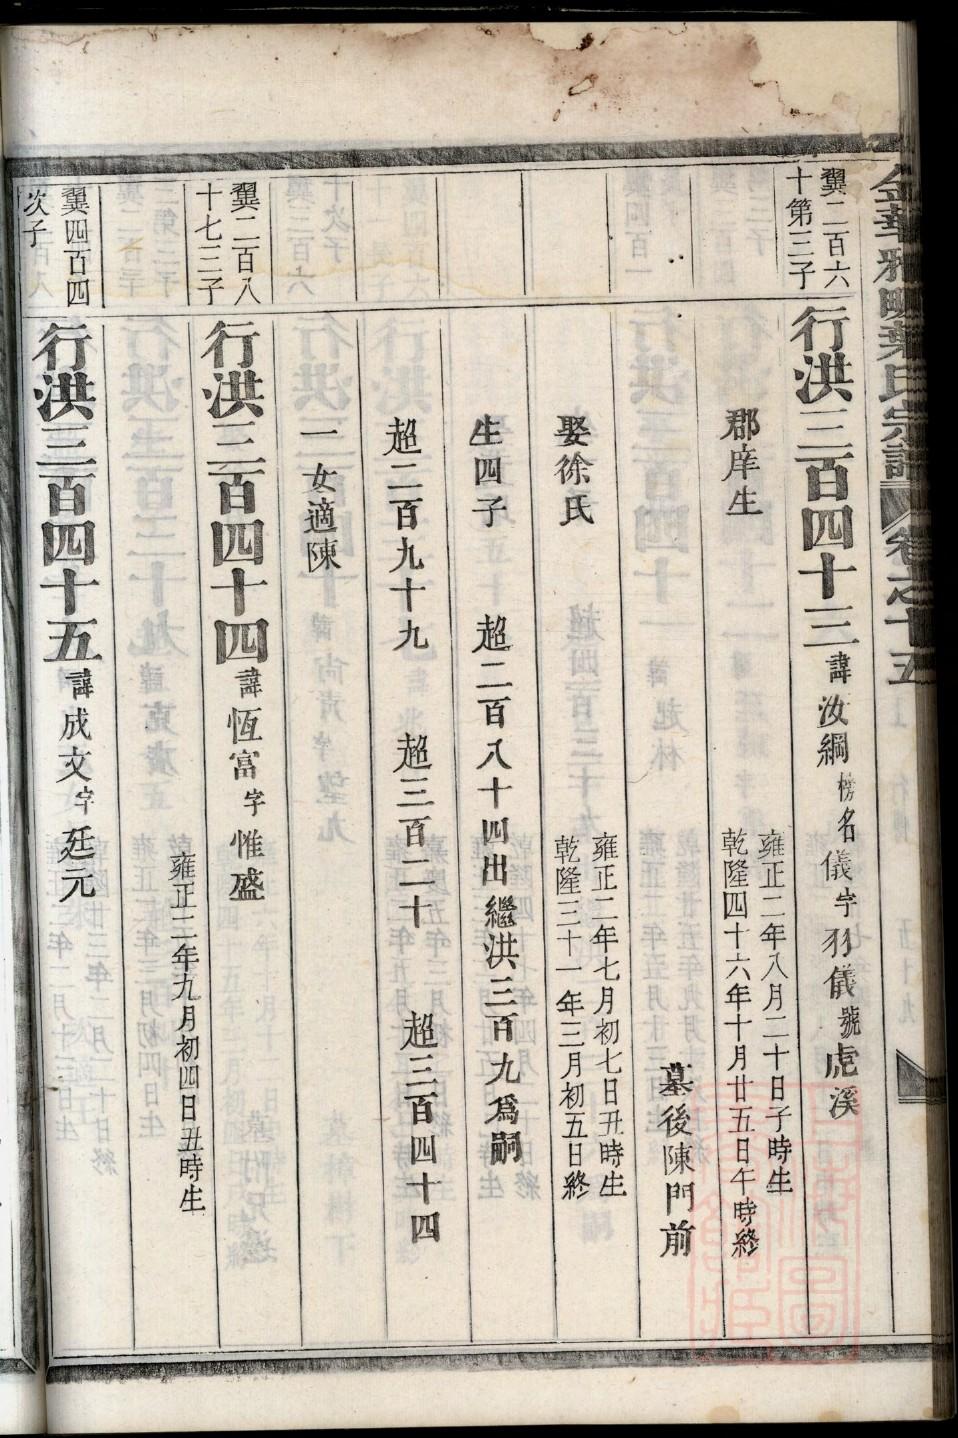 金華雅畈葉氏宗譜 卷之十五
翼二百六
十第三子
行洪三百四十三 諱汝綱榜名儀字羽儀號虎溪
郡庠生
雍正二年八月二十日子時生
乾隆四十六年十月廿五日午時終
墓後陳門前
娶徐氏
雍正二年七月初七日丑時生
乾隆三十一年三月初五日終
生四子 超二百八十四出繼洪三百九爲嗣
超二百九十九 超三百二十 超三百四十四
一女適陳
翼二百八
十七三子
行洪三百四十四 諱恆富字惟盛
雍正三年九月初四日丑時生
翼四百四
次子
行洪三百四十五 諱成文字廷元